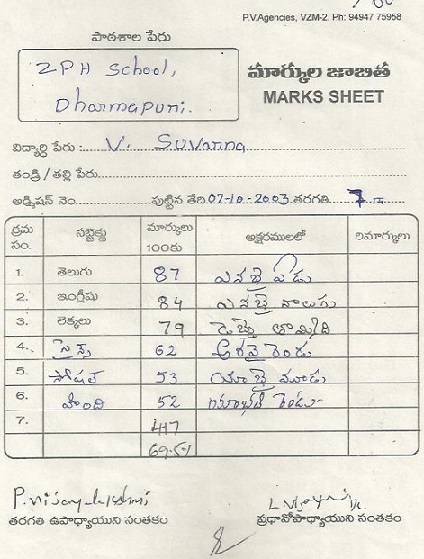 P.V.Agencies, VZM-2. Ph: 94947 75958
పాఠశాల పేరు
ZPH School,
Dharmapuri.
మార్కుల జాబితా
MARKS SHEET
విద్యార్థి పేరు: V. Suvarna
తండ్రి / తల్లి పేరు
అడ్మిషన్ నెం. పుట్టిన తేది 07-10-2003 తరగతి 7
క్రమ సం. సబ్జెక్టు మార్కులు 100కు అక్షరములలో రిమార్కులు
1. తెలుగు 87 ఎనభై ఏడు
2. ఇంగ్లీషు 84 ఎనభై నాలుగు
3. లెక్కలు 79 డెబ్భై తొమ్మిది
4. సైన్స్ 62 అరవై రెండు
5. సోషల్ 53 యాభై మూడు
6. హింది 52 యాభై రెండు
7. 417
69.5%
P. Vijayalakshmi
తరగతి ఉపాధ్యాయుని సంతకం
ప్రధానోపాధ్యాయుని సంతకం